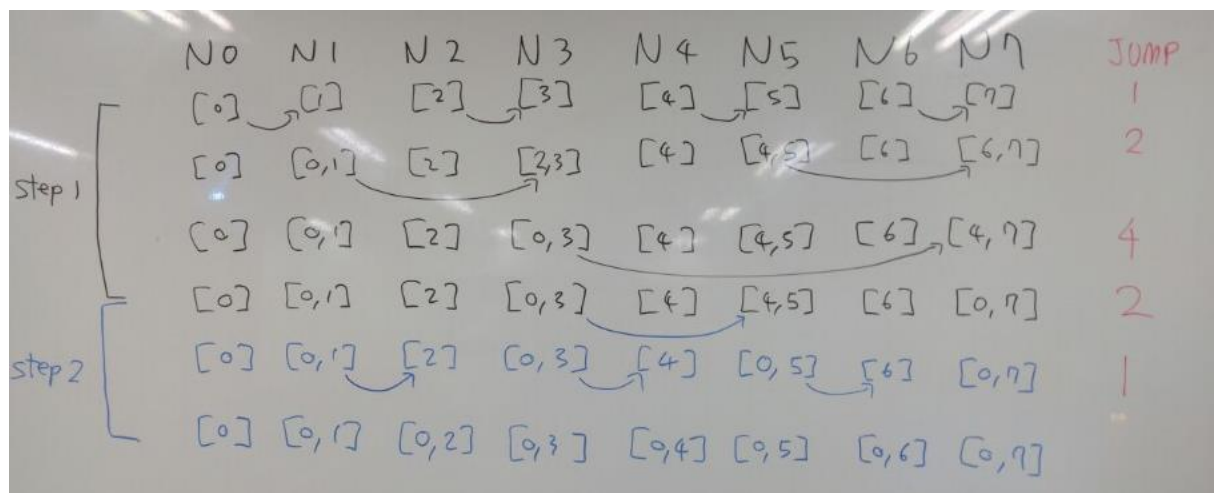 N0 N1 N2 N3 N4 N5 N6 N7 JUMP
[0] [1] [2] [3] [4] [5] [6] [7] 1
[0] [0,1] [2] [2,3] [4] [4,5] [6] [6,7] 2
step 1
[0] [0,1] [2] [0,3] [4] [4,5] [6] [4,7] 4
[0] [0,1] [2] [0,3] [4] [4,5] [6] [0,7] 2
step 2
[0] [0,1] [2] [0,3] [4] [0,5] [6] [0,7] 1
[0] [0,1] [0,2] [0,3] [0,4] [0,5] [0,6] [0,7]